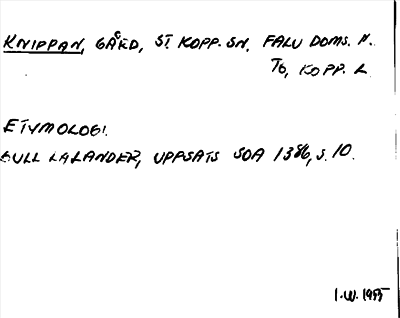 KNIPPAN, GÅRD, ST. KOPP. SN, FALU DOMS. H.
TG, KOPP. L
ETYMOLOGI.
GULL LALANDER, UPPSATS SOA 1386, S. 10.
I.W. 1955